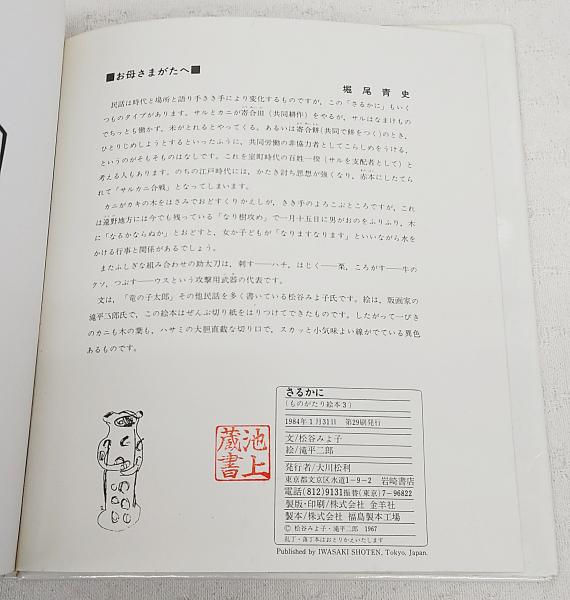 ■お母さまがたへ■
堀尾青史
民話は時代と場所と語り手きき手により変化するものですが、この「さるかに」もいく
つものタイプがあります。サルとカニが寄合田（共同耕作）をやるが、サルはなまけもの
でちっとも働かず、米がとれるとやってくる。あるいは寄合餅(共同で餅をつく)のとき、
ひとりじめしようとするといったふうに、共同労働の非協力者としてこらしめをうける、
というのがそもそものはなしです。これを室町時代の百姓一揆（サルを支配者として）と
考える人もあります。のちの江戸時代には、かたき討ち思想が強くなり、赤本にしたてら
れて「サルカニ合戦」となってしまいます。
カニがカキの木をはさみでおどすくりかえしが、きき手のよろこぶところですが、これ
は遠野地方には今でも残っている「なり樹攻め」で一月十五日に男がおのをふりふり、木
に「なるかならぬか」とおどすと、女か子どもが「なりますなります」といいながら水を
かける行事と関係があるでしょう。
またふしぎな組み合わせの助太刀は、刺す――ハチ、はじく――栗、ころがす――牛の
クソ、つぶす――ウスという攻撃用武器の代表です。
文は、「竜の子太郎」その他民話を多く書いている松谷みよ子氏です。絵は、版画家の
滝平二郎氏で、この絵本はぜんぶ切り紙をはりつけてできたものです。したがって一ぴき
のカニも木の葉も、ハサミの大胆直截な切り口で、スカッと小気味よい線がでている異色
あるものです。
池上
蔵書
さるかに
(ものがたり絵本3)
1984年1月31日 第29刷発行
文/松谷みよ子
絵/滝平二郎
発行者/大川松利
東京都文京区水道1-9-2 岩崎書店
電話(812)9131振替(東京)7-96822
製版・印刷/株式会社 金羊社
製本/株式会社 福島製本工場
© 松谷みよ子・滝平二郎 1967
乱丁・落丁本はおとりかえいたします
Published by IWASAKI SHOTEN, Tokyo, Japan.